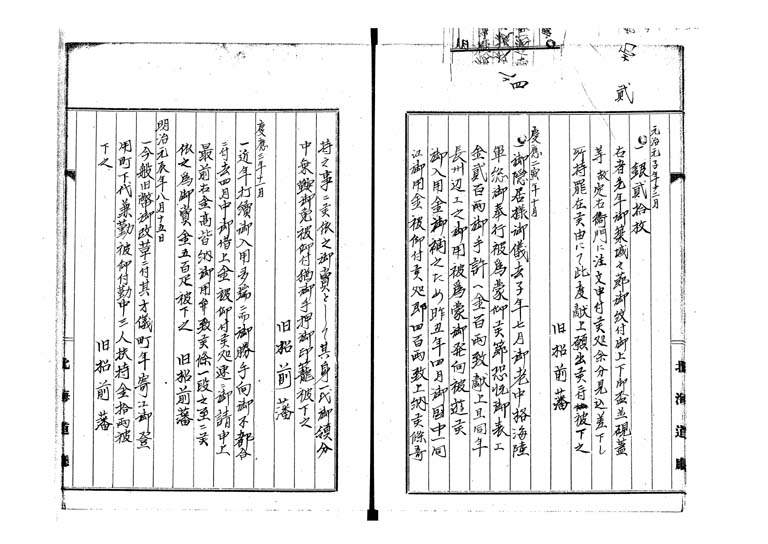 貳
元治元子年十二月
一銀貳拾枚
右者先年御築城之節御紋付御上下御盃並硯蓋
等 故定右衛門に注文申付候処余分見込差下し
所持罷在候由にて此度献上願出候に付被下之
旧松前藩
慶應二寅年十月
一御隠居様御儀去子年七月御老中格海陸
軍総御奉行被為蒙仰候節恐悦御表上
金貳百両御手許へ金百両致献上且同年
長州辺土之御用被為蒙御発向被遊候
御入用金御補之ため昨丑年四月御国中一同
江御用金被仰付候処即四百両致上納候條奇
北海道廳
特之事ニ候依之御賞として其身一代御領分
中乗鞍御免被仰付猶御手押御印籠被下之
旧松前藩
慶應三年十一月
一近年打續御入用多端ニ而御勝手向御不都合
ニ付去四月中御借上金被仰付候処速ニ御請申上
最前右金高皆納御用弁致候條一段之至ニ候
依之為御賞金五百疋被下之 旧松前藩
明治元辰年八月十五日
一今般旧弊御改革ニ付其方儀町年寄江御登
用町下代兼勤被仰付勤中二人扶持金拾両被
下之
旧松前藩
北海道廳